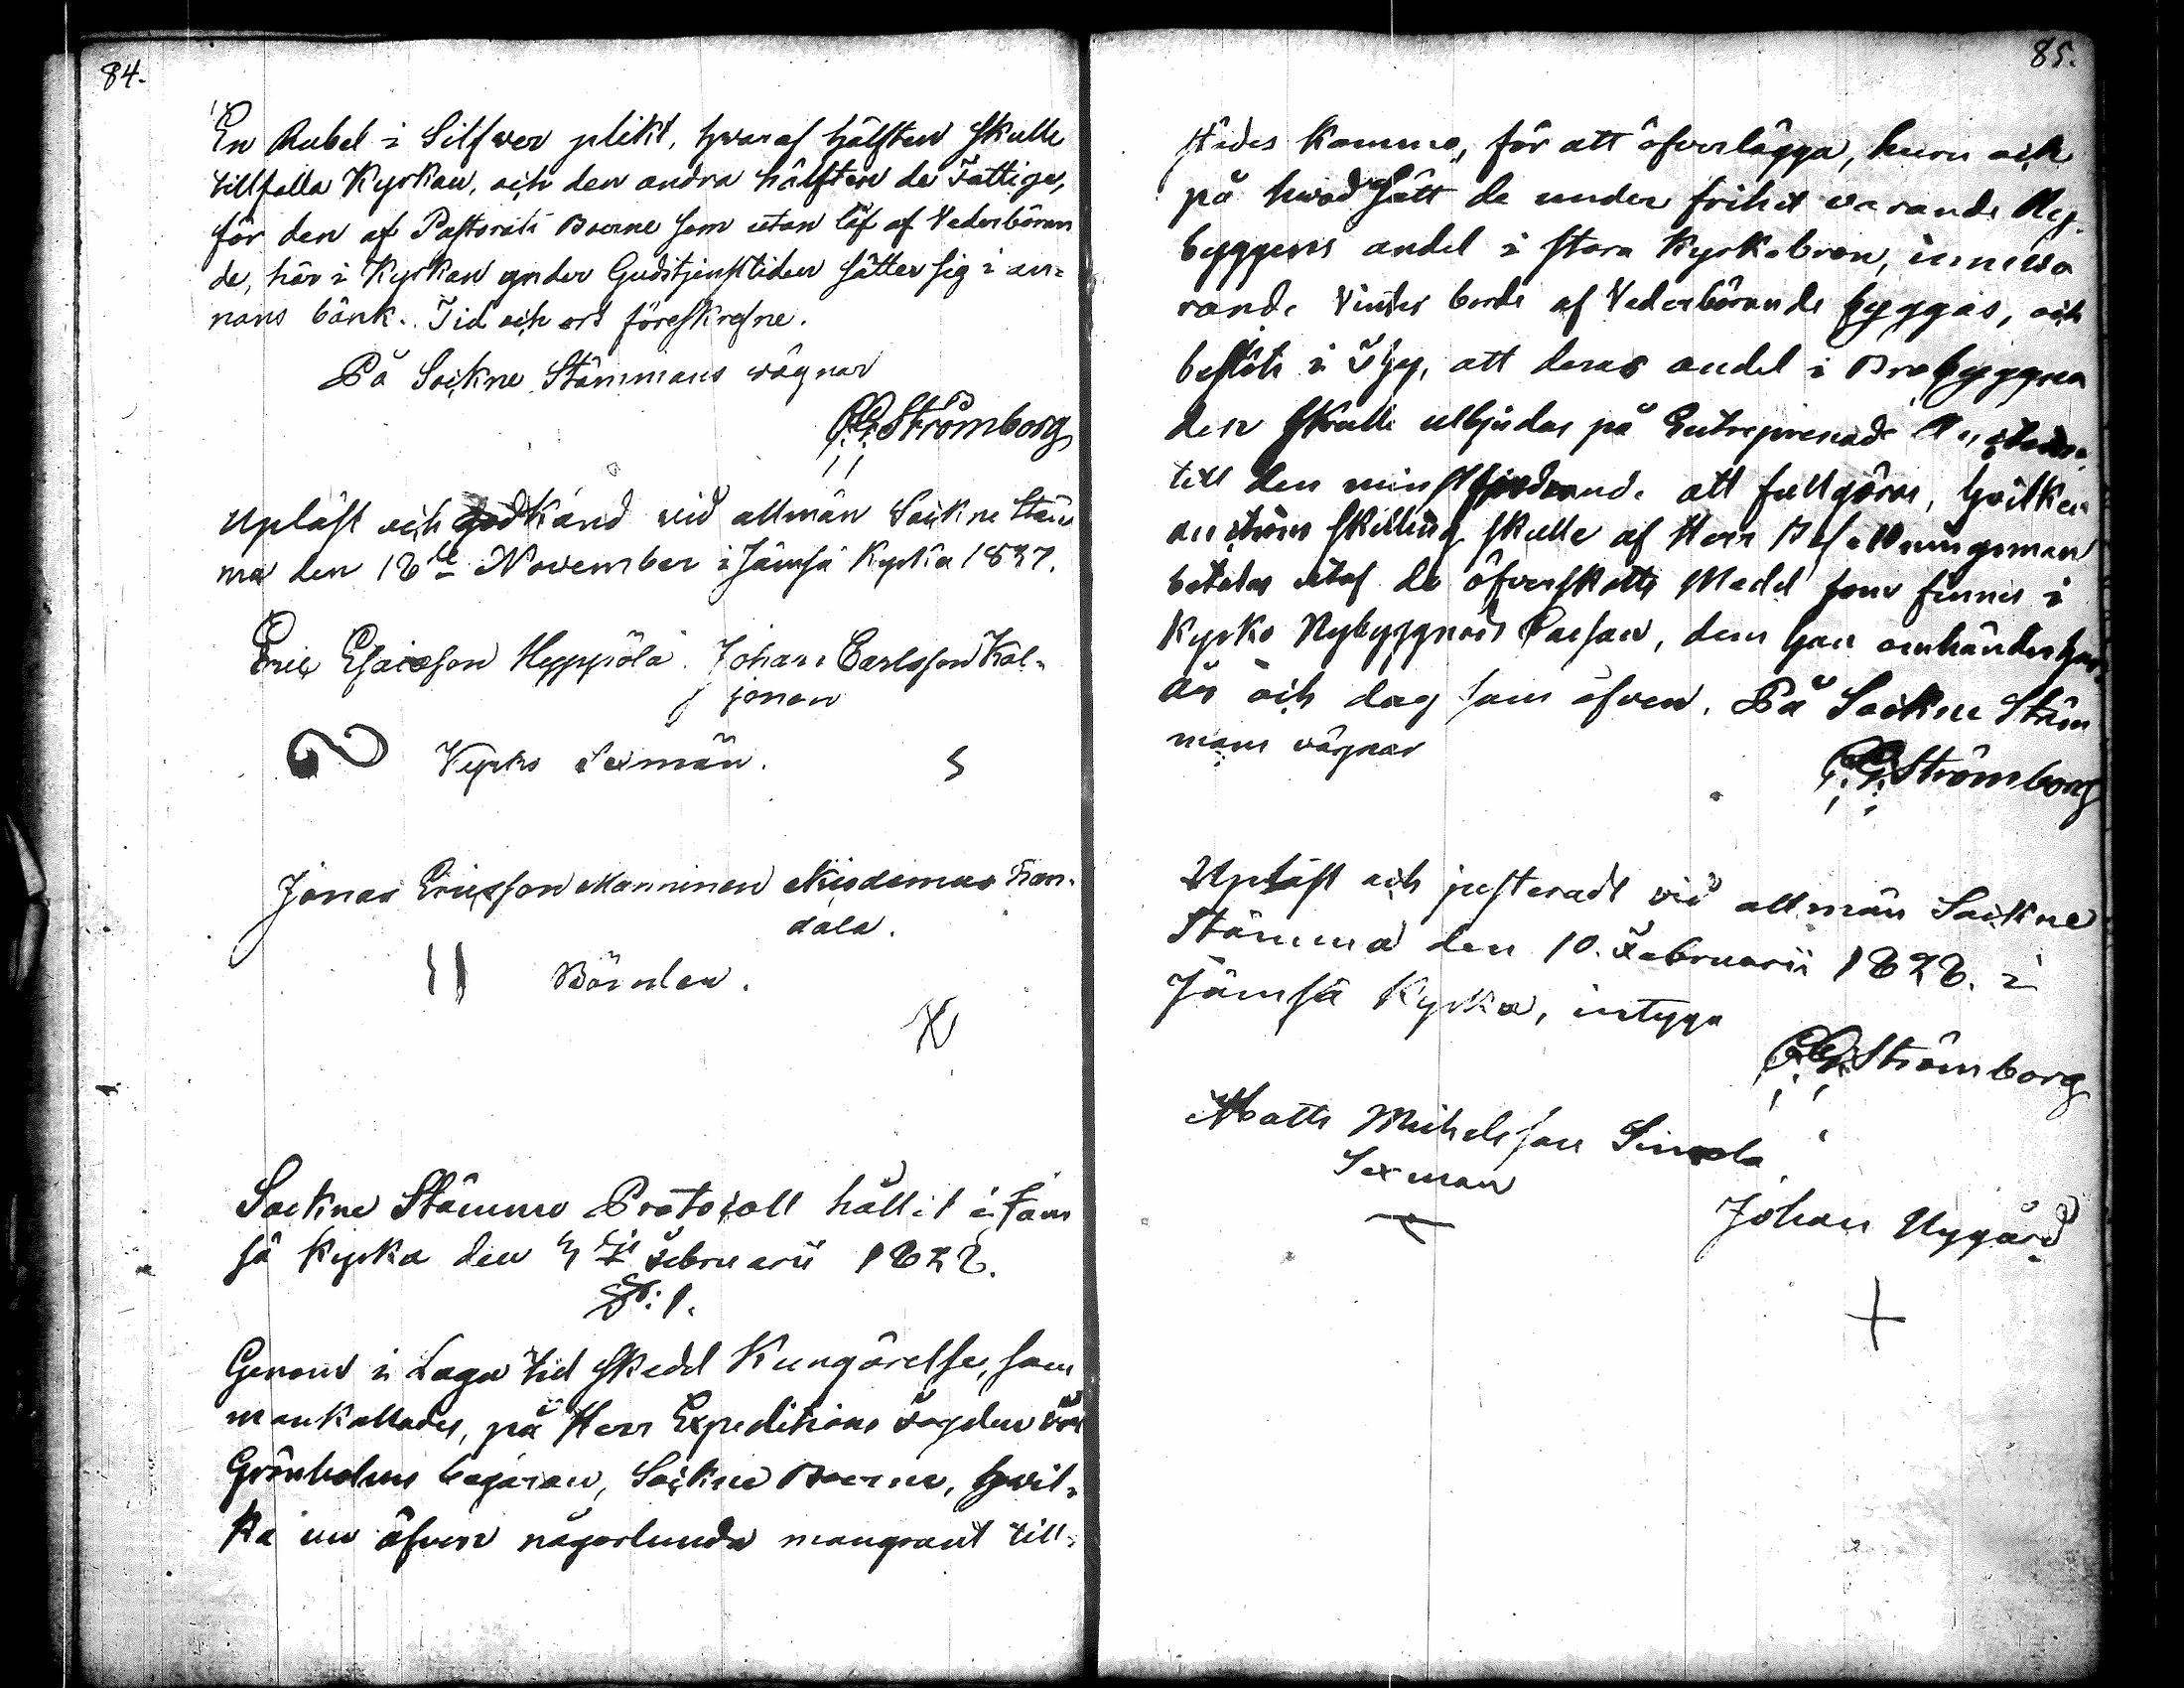 84.
En Rubel i Silfwer plikt, hwaraf hälften skulle
tillfalla Kyrkan, och den andra hälften de Fattige,
för den af Pastorats Boerne som utan lof af Vederböran
de, här i Kyrkan under Gudstjensttiden sätter sig i an=
nans bänk. Tid och ort föreskrefne.
På Sockne Stämmans wägnar
C.G. Strömborg
Upläst och godkänd vid allmän Sockne Stäm
ma den 18de November i Jämsä Kyrka 1837.
Eric Esaiæson Heppölä. Johan Carlsson Kol=
jonen
Kyrko Sexmän.
Jonas Ericsson Manninen Nicodemus Kan=
dala.
Bönder.
Sockne Stämmo Protocoll hållit i Jäm
sä Kyrka den Februarii 1828.
§: 1.
Genom i Laga tid skedd Kungörelse, sam
mankallades, på Herr Expeditions Fogden
Grönholms begäran, Sockne Boerne, hwil=
ka nu äfven någorlunda mangrant till=
85.
städes komma, för att öfverlägga, huru och
på hwad sätt de under frihet varande Ny
byggens andel i stora Kyrkobron, inneva
rande Vinter borde af Vederbörande byggas, och
beslöts i så att deras andel i Brobyggna
den skulle utbjudas på Entreprenad
till den minstbjudande att fullgöras, hvilken
skilling skulle af Herr Befallningsman
betalas utaf de öfverskotts Medel som finnes i
Kyrko Nybyggnads Cassan, dem han omhänder har,
år och dag som ofvan. På Sockne Stäm
mans vägnar
C.G. Strömborg
Upläst och justeradt vid allmän Sockne
Stämma den 10. Februarii 1828. i
Jämsä Kyrka, intyga
C.G. Strömborg
Matts Michelsson Simola
Sexman
Johan Nygård